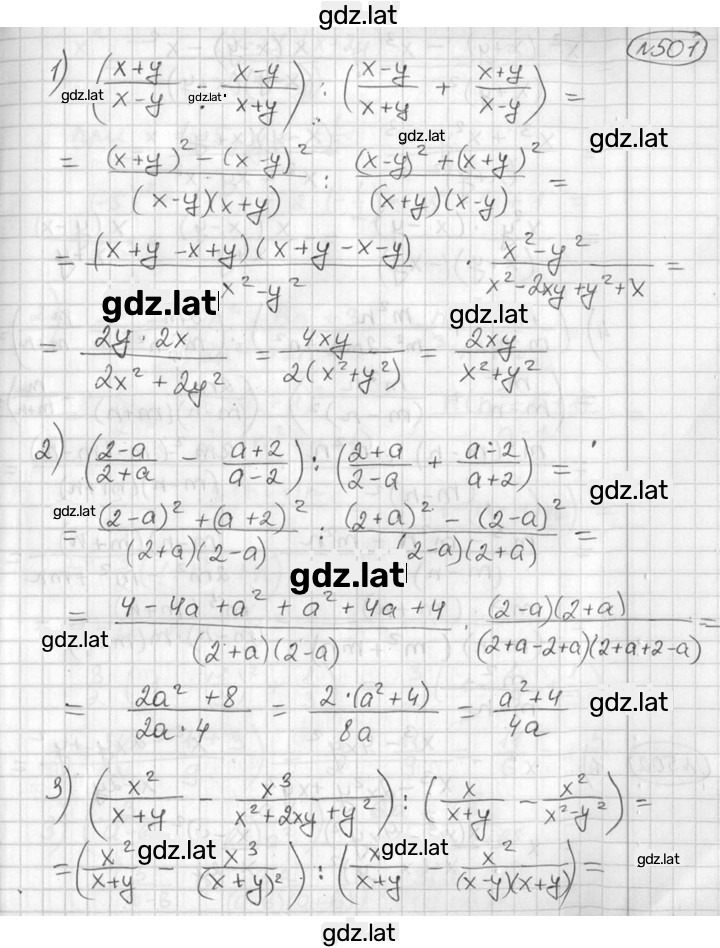 gdz.lat
№501
1) ((x+y)/(x-y) - (x-y)/(x+y)) : ((x-y)/(x+y) + (x+y)/(x-y)) =
gdz.lat gdz.lat gdz.lat gdz.lat
= ((x+y)² - (x-y)²)/((x-y)(x+y)) : ((x-y)² + (x+y)²)/((x+y)(x-y)) =
= ((x+y -x+y)(x+y -x-y))/(x²-y²) · (x²-y²)/(x²-2xy+y²+x =
gdz.lat gdz.lat
= (2y · 2x)/(2x² + 2y²) = 4xy/(2(x²+y²)) = 2xy/(x²+y²)
2) ((2-a)/(2+a) - (a+2)/(a-2)) : ((2+a)/(2-a) + (a-2)/(a+2)) =
gdz.lat gdz.lat
= ((2-a)² + (a+2)²)/((2+a)(2-a)) : ((2+a)² - (2-a)²)/((2-a)(2+a)) =
gdz.lat
= (4-4a+a²+a²+4a+4)/((2+a)(2-a)) · ((2-a)(2+a))/((2+a-2+a)(2+a+2-a)) =
gdz.lat
= (2a²+8)/(2a·4) = (2·(a²+4))/8a = (a²+4)/4a
gdz.lat
3) (x²/(x+y) - x³/(x²+2xy+y²)) : (x/(x+y) - x²/(x²-y²)) =
gdz.lat gdz.lat gdz.lat
= (x²/(x+y) - x³/(x+y)²) : (x/(x+y) - x²/((x-y)(x+y))) =
gdz.lat